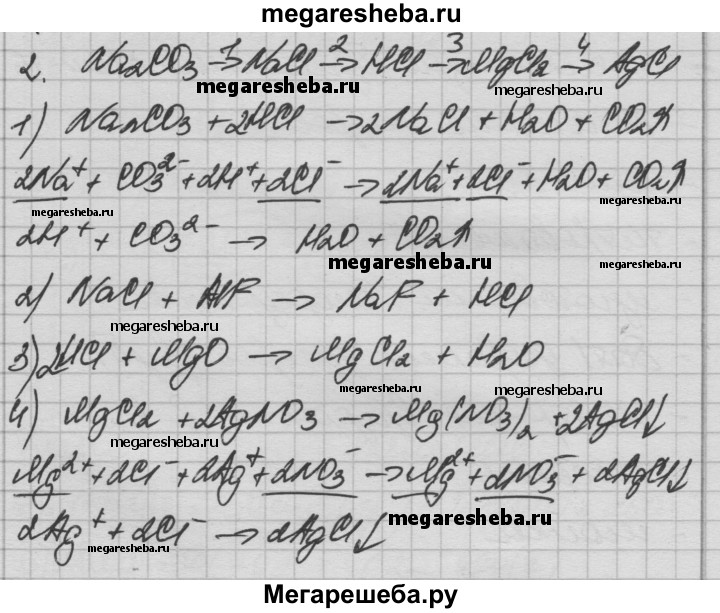 megaresheba.ru
2. Na2CO3 →1 NaCl →2 HCl →3 MgCl2 →4 AgCl
megaresheba.ru
megaresheba.ru
1) Na2CO3 + 2HCl → 2NaCl + H2O + CO2↑
2Na⁺ + CO3²⁻ + 2H⁺ + 2Cl⁻ → 2Na⁺ + 2Cl⁻ + H2O + CO2↑
megaresheba.ru
megaresheba.ru
2H⁺ + CO3²⁻ → H2O + CO2↑
megaresheba.ru
megaresheba.ru
2) NaCl + HF → NaF + HCl
megaresheba.ru
3) 2HCl + MgO → MgCl2 + H2O
megaresheba.ru
megaresheba.ru
4) MgCl2 + 2AgNO3 → Mg(NO3)2 + 2AgCl↓
megaresheba.ru
megaresheba.ru
Mg²⁺ + 2Cl⁻ + 2Ag⁺ + 2NO3⁻ → Mg²⁺ + 2NO3⁻ + 2AgCl↓
megaresheba.ru
2Ag⁺ + 2Cl⁻ → 2AgCl↓
megaresheba.ru
Мегарешеба.ру